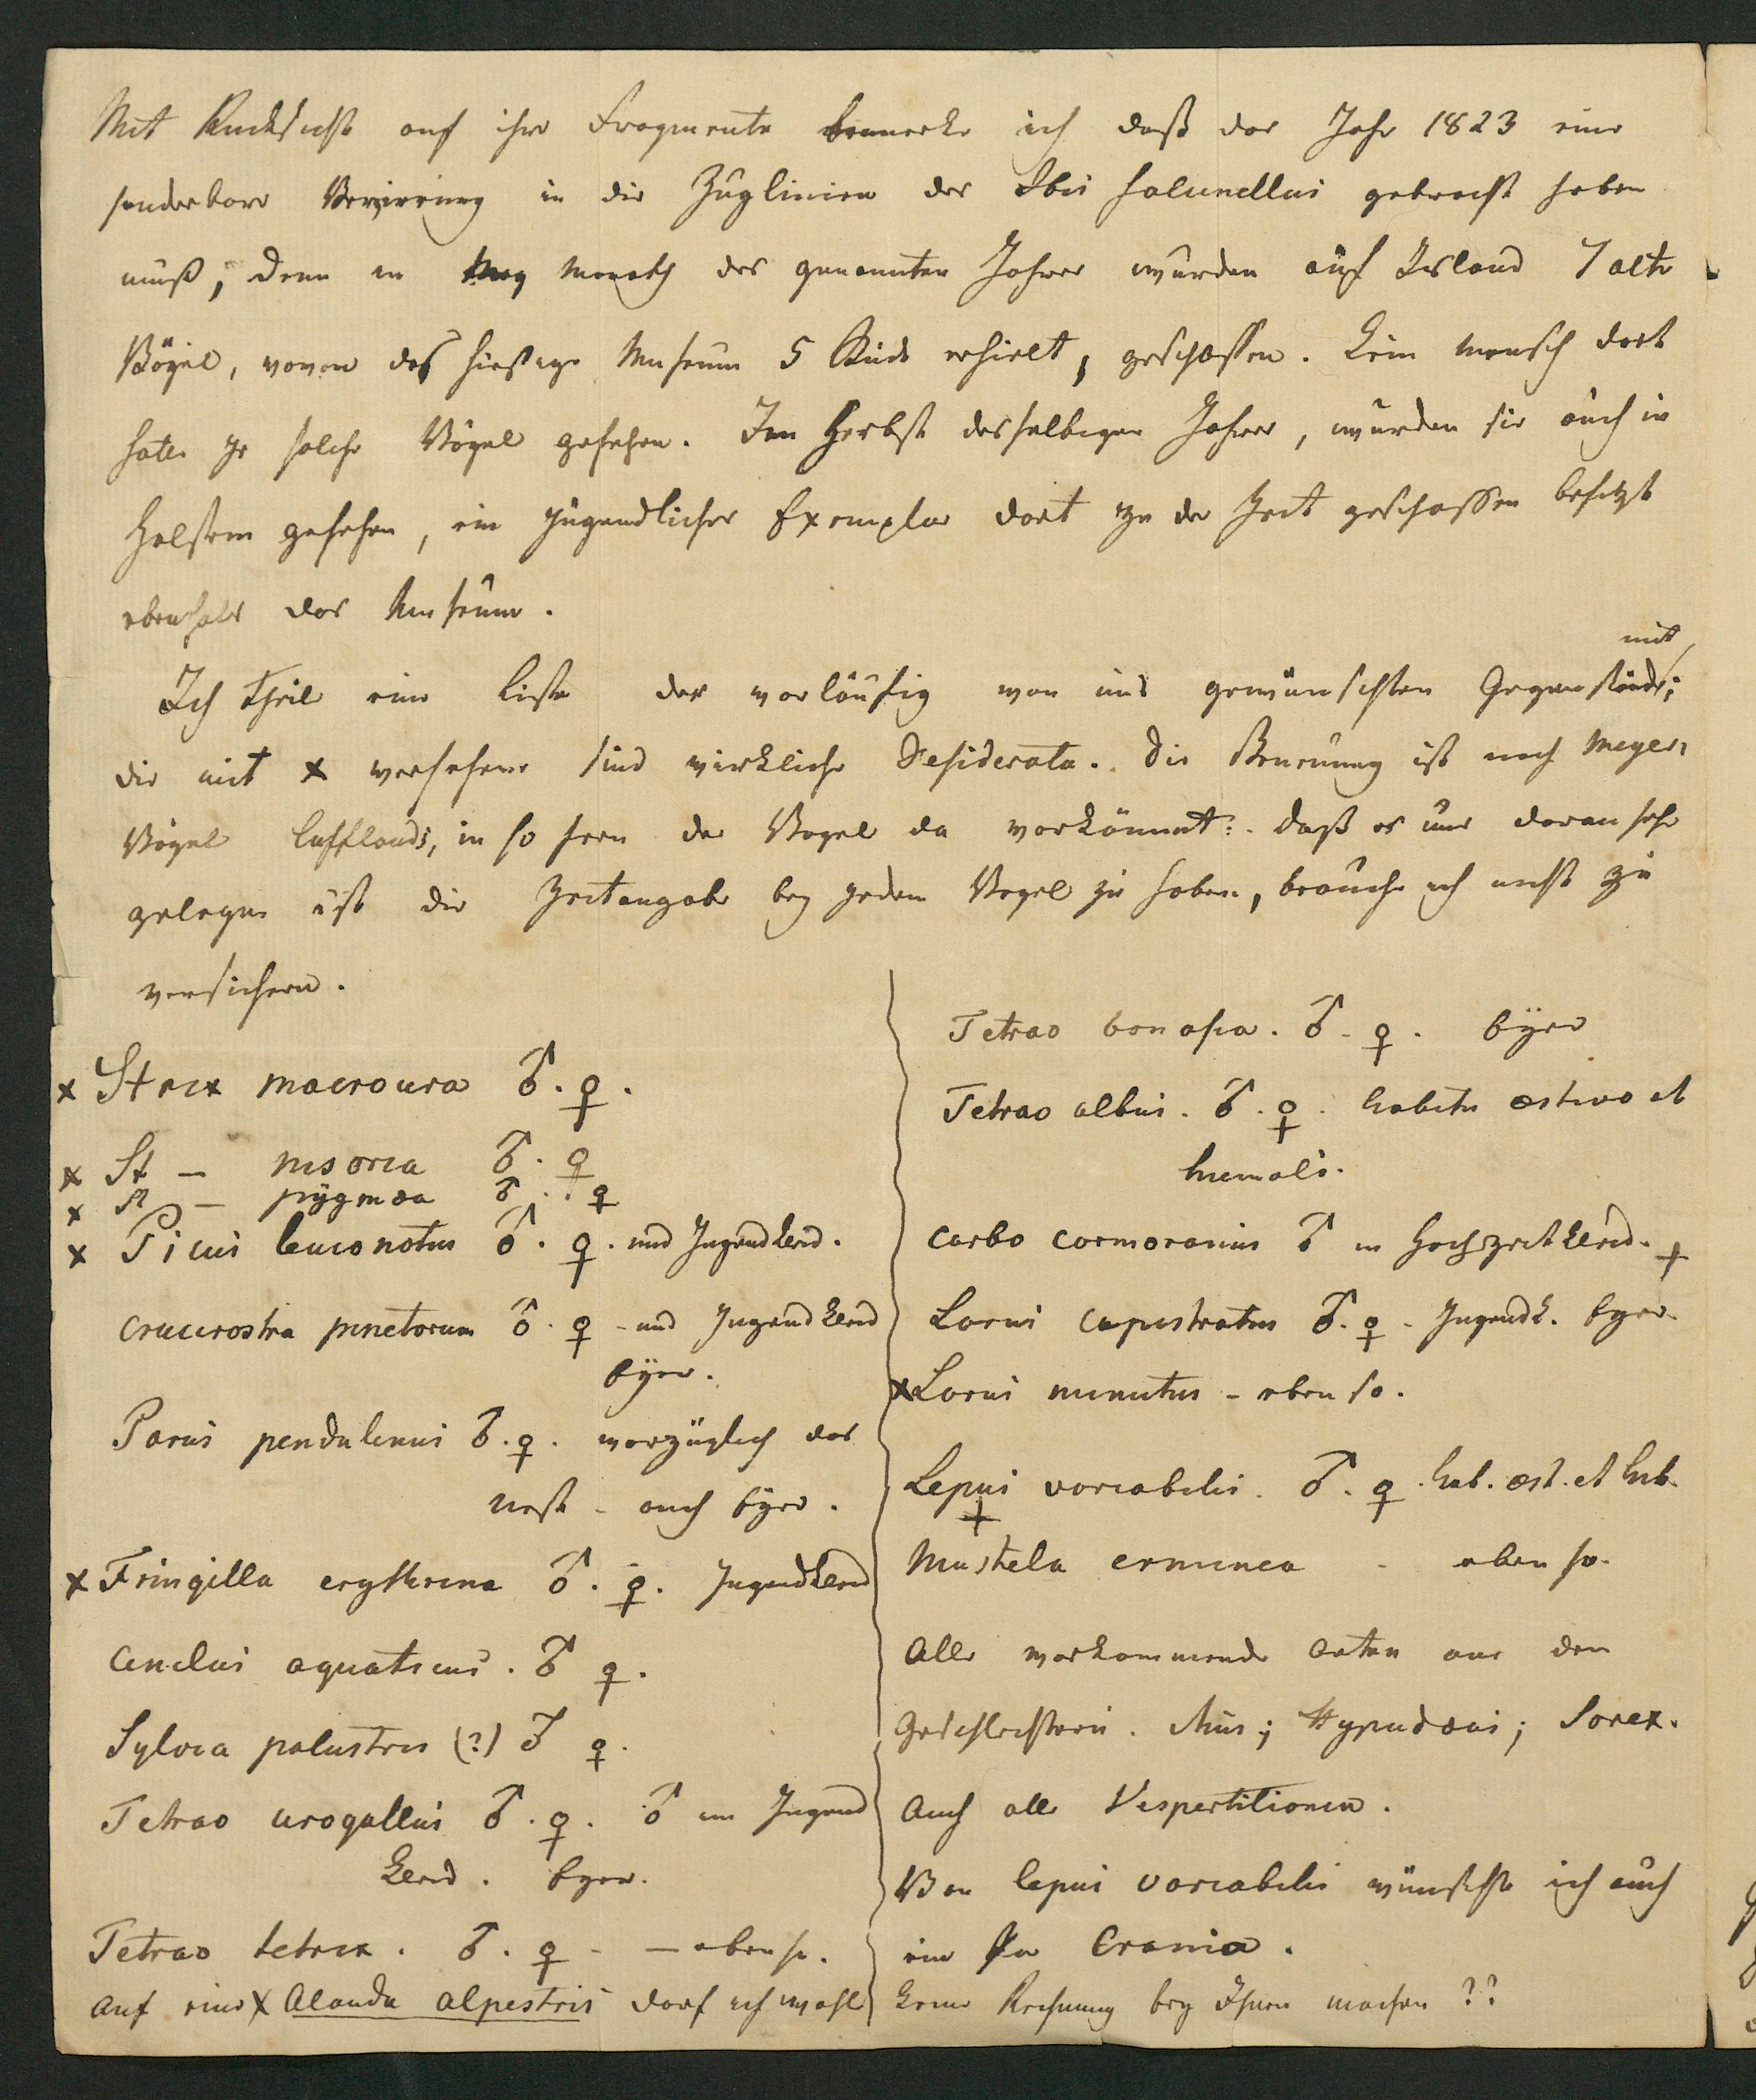 Mit Rucksicht auf ihre Fragmente bemerke ich daß das Jahr 1823 eine
sonderbare Verwirrung in die Zuglinien der Ibis falcinellus gebracht haben
muß, denn in May Monath des genannten Jahres wurden auf Island 7 alte
Vögel, wovon das hiesige Museum 5 Stück erhielt, geschossen. Kein Mensch dort
hate je solche Vögel gesehen. Im Herbst desselbigen Jahres, wurden sie auch in
Holstein gesehen, ein jugendliches Exemplar dort zu der Zeit geschossen besitzt
ebenfals das Museum.
Ich theile eine Liste der vorläufig von uns gewünschten Gegenstände mit;
die mit x versehene sind wirkliche Desiderata. Die Benenung ist nach Meyers
Vögel Liefflands, in so fern der Vogel da vorkömmt: daß es uns daran sehr
gelegen ist die Zeitangabe bey jedem Vogel zu haben, brauche ich nicht zu
versichern.
x Strix macroura ♂. ♀.
x St – nisoria ♂. ♀
x St – pygmæa ♂. . ♀
x Picus leuconotus ♂. ♀. und Jugendkleid.
Crucirostra pinetorum ♂. ♀ - und Jugendkleid
Eyer.
Parus pendulinus ♂. ♀. vorzüglich das
Nest - auch Eyer.
x Fringilla erythrina ♂. ♀. Jugendkleid
Cinclus aquaticus. ♂ ♀.
Sylvia palustris (?) ♂ ♀.
Tetrao urogallus ♂. ♀. ♂ im Jugend
kleid. Eyer.
Tetrao tetrix. ♂. ♀ - — ebenso.
Auf eine x Alauda alpestris darf ich wohl
Tetrao bonasia. ♂ - ♀. Eyer
Tetrao albus. ♂. ♀. habitu æstivo et
hiemali.
Carbo cormoranus ♂ im Hochzeitkleid. +
Larus capistratus ♂. ♀ - Jugendk. Eyer.
x Larus minutus - eben so.
Lepus variabilis. ♂. ♀. hab. æst. et hib.
+
Mustela erminea - eben so.
Alle vorkommende Arten aus den
Geschlechtern. Mus; Hypudæus; Sorex.
Auch alle Vespertilionen.
Von Lepus variabilis wünschte ich auch
ein Pa Crania.
keine Rechnung bey Ihnen machen ??